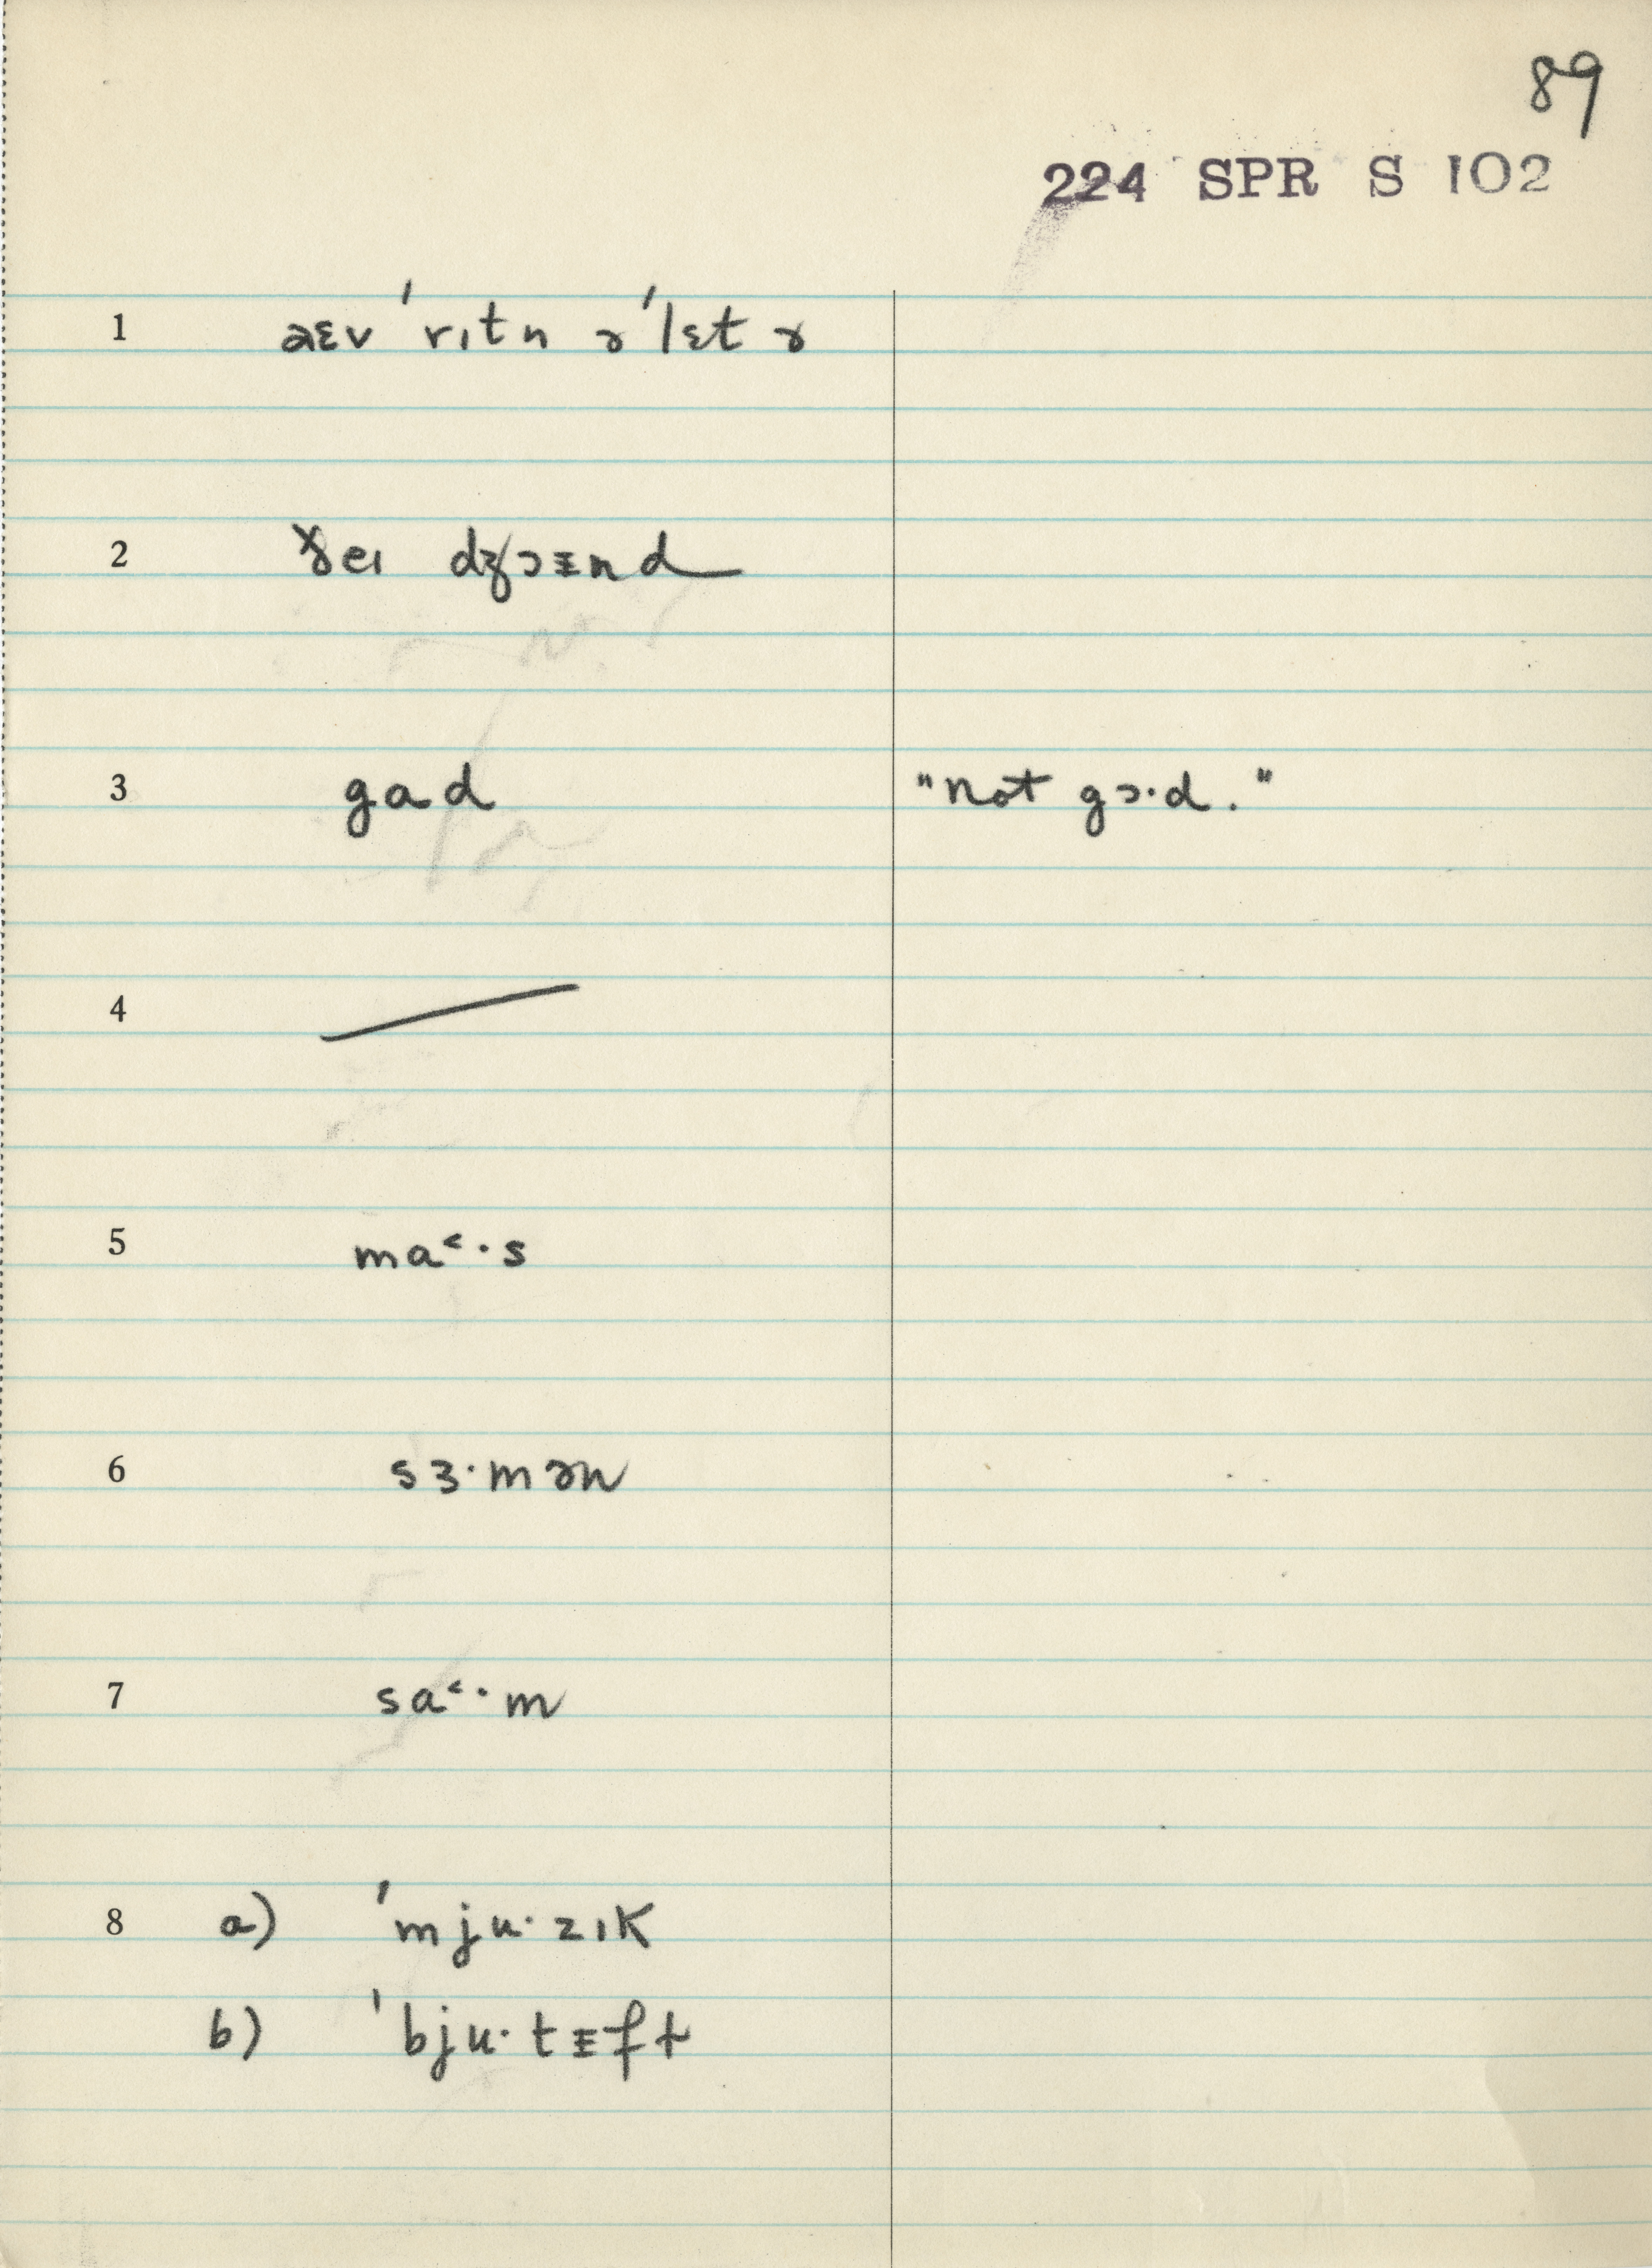 89
224 SPR S 102
1 aɛv 'rɪtn ə 'lɛt ɚ
2 ðeɪ dʒɔɪnd
3 gad "not gɔ·d."
4
5 ma˂·s
6 sɜ·mən
7 sa˂·m
8 a) 'mju·zɪk
b) 'bju·tɪft